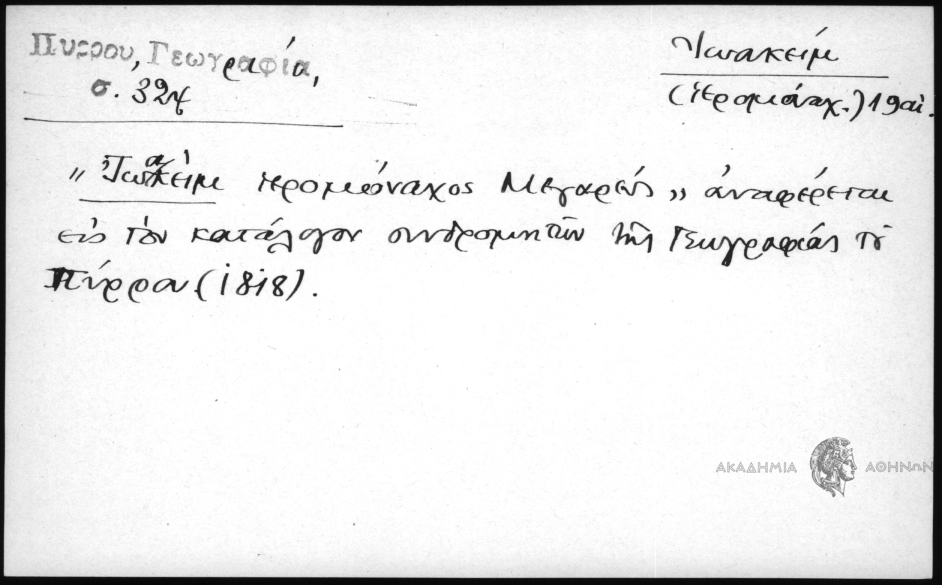 Πυρρου, Γεωγραφία,
σ. 324
Ἰωακείμ
(ἱερομόναχ.) 19 αἰ.
„ Ἰωακείμ ἱερομόναχος Μεγαρεύς „ ἀναφέρεται
εἰς τὸν κατάλογον συνδρομητῶν τῆς Γεωγραφίας τοῦ
Πύρρου (1818).
ΑΚΑΔΗΜΙΑ ΑΘΗΝΩΝ